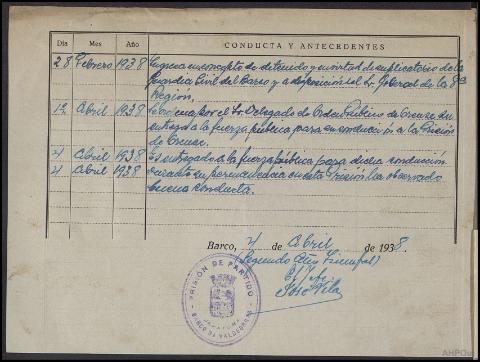 Día Mes Año CONDUCTA Y ANTECEDENTES
28 Febrero 1938 Ingresa en concepto de detenido y en virtud de suplicatorio de la
Guardia Civil del Barco y a disposición del Sr. General de la 8ª
Región,
1º Abril 1938 Se ordena por el Sr. Delegado de Orden Público de Orense su
entrega a la fuerza pública para su conducción a la Prisión
de Orense.
4 Abril 1938 Es entregado a la fuerza pública para dicha conducción
4 Abril 1938 Durante su permanencia en esta Prisión ha observado
buena conducta.
Barco, 4 de Abril de 1938.
(Segundo Año Triunfal)
El Jefe.
José Vila
PRISIÓN DE PARTIDO
JEFATURA
BARCO DE VALDEORRAS
AHPOu